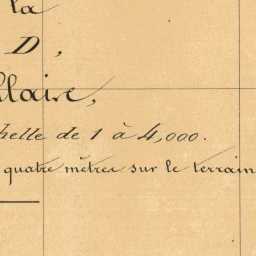 la
D,
llaire,
helle de 1 à 4,000.
quatre mètres sur le terrain